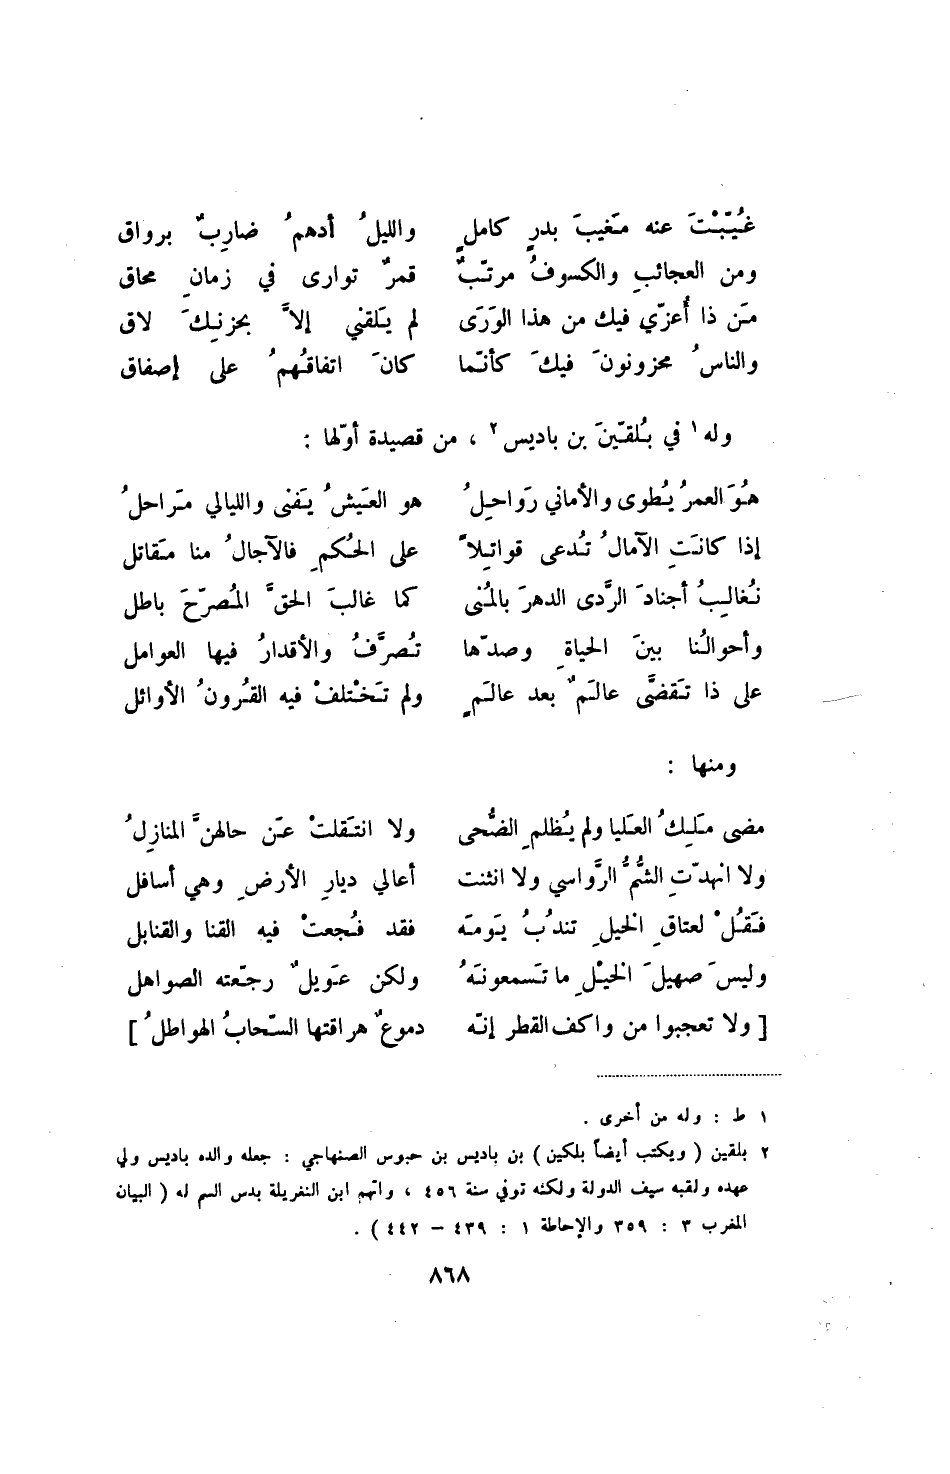 غُيِّبْتَ عنه مَغيبَ بدرٍ كاملٍ والليلُ أدهمُ ضاربٌ برواق
ومن العجائبِ والكسوفُ مرتّبٌ قمرٌ توارى في زمانِ محاق
مَن ذا أُعزّي فيك من هذا الوَرَى لم يَلقني إلاَّ بحزنِكَ لاق
والناسُ محزونونَ فيكَ كأنّما كانَ اتفاقُهمُ على إصفاق
وله١ في بُلقّينَ بن باديس٢ ، من قصيدة أوّلها :
هوَ العمرُ يُطوى والأماني رَواحِلُ هو العَيشُ يَفنى والليالي مَراحلُ
إذا كانَتِ الآمالُ تُدعى قواتِلاً على الحُكمِ فالآجالُ منا مَقاتل
نُغالِبُ أجنادَ الرَّدى الدهرَ بالمُنى كما غالبَ الحقَّ المُصرّحَ باطل
وأحوالُنا بينَ الحياةِ وصدّها تُصرَّفُ والأقدارُ فيها العوامل
على ذا تَقضَّى عالَمٌ بعد عالَمٍ ولم تَختلفْ فيه القُرونُ الأوائل
ومنها :
مضى مَلِكُ العَليا ولم يُظلمِ الضُّحى ولا انتَقلتْ عَن حالهنَّ المنازِلُ
ولا انهدّتِ الشُّمُّ الرَّواسي ولا انثنت أعالي ديارِ الأرضِ وهي أسافل
فَقُلْ لعتاقِ الخيلِ تندُبُ يَومَه فقد فُجعتْ فيه القنا والقنابل
وليسَ صهيلَ الخيْلِ ما تَسمعونَهُ ولكن عَويلٌ رجّعته الصواهل
[ ولا تعجبوا من واكف القطر إنّه دموعٌ هراقتها السّحابُ الهواطلُ ]
١ ط : وله من أخرى .
٢ بلقين ( ويكتب أيضاً بلكين ) بن باديس بن حبوس الصنهاجي : جعله والده باديس ولي
عهده ولقبه سيف الدولة ولكنه توفي سنة ٤٥٦ ، واتهم ابن النغريلة بدس السم له ( البيان
المغرب ٣ : ٣٥٩ والإحاطة ١ : ٤٣٩ – ٤٤٢ ) .
٨٦٨